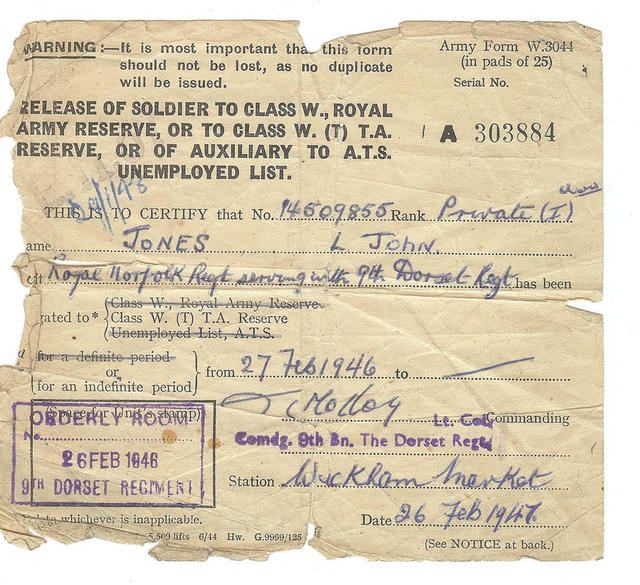 WARNING:—It is most important that this form
should not be lost, as no duplicate
will be issued.
Army Form W.3044
(in pads of 25)
Serial No.
RELEASE OF SOLDIER TO CLASS W., ROYAL
ARMY RESERVE, OR TO CLASS W. (T) T.A.
RESERVE, OR OF AUXILIARY TO A.T.S.
UNEMPLOYED LIST.
A 303884
THIS IS TO CERTIFY that No. 14509855 Rank Private (I)
ame JONES L JOHN.
it Royal Norfolk Regt serving with 9th Dorset Regt has been
gated to* Class W., Royal Army Reserve
Class W. (T) T.A. Reserve
Unemployed List, A.T.S.
d for a definite period
or
for an indefinite period
from 27 Feb 1946 to —
(Space for Unit's stamp)
Lt. Col. Commanding
Comdg. 9th Bn. The Dorset Regt
ORDERLY ROOM
No.
26 FEB 1946
9TH DORSET REGIMENT
Station Wickham Market
Date 26 Feb 1947.
Delete whichever is inapplicable.
5,500 lifts 6/44 Hw. G.9999/125
(See NOTICE at back.)